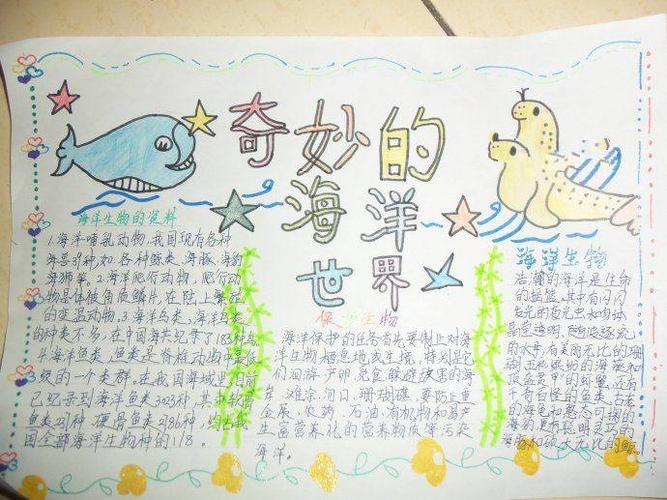 奇妙的
海洋
世界
海洋生物的资料
1.海洋哺乳动物,我国现有各种
海兽39种,如各种鲸类、海豚、海豹
海狮等。2.海洋爬行动物,爬行动
物是体被角质鳞片,在陆上繁殖
的变温动物。3.海洋鸟类,海洋鸟类
的种类不多,在中国海共纪录了183种鸟
4.海洋鱼类,鱼类是脊椎动物中最低
级的一个类群。在我国海域里,目前
已纪录到海洋鱼类3023种,其中软骨
鱼类237种,硬骨鱼类2786种,约占我
国全部海洋生物种的1/8.
保护生物
海洋保护的任务首先要制止对海
洋生物 栖息地或生境,特别是它
们洄游、产卵、觅食、躲避敌害的海
岸、滩涂、河口、珊瑚礁,要防止重
金属、农药、石油、有机物和易产
生富营养化的营养物质等污染
海洋。
海洋生物
浩瀚的海洋是生命
的摇篮,其中有闪闪
发光的夜光虫和肉体
晶莹透明,随波逐流
的水母,有美丽无比的珊
瑚,五彩缤纷的海葵和
披盔戴甲的虾蟹,还有
千奇百怪的鱼类,古老
的海龟和憨态可掬的
海豹,更有聪明灵巧的
海豚和硕大无比的鲸。